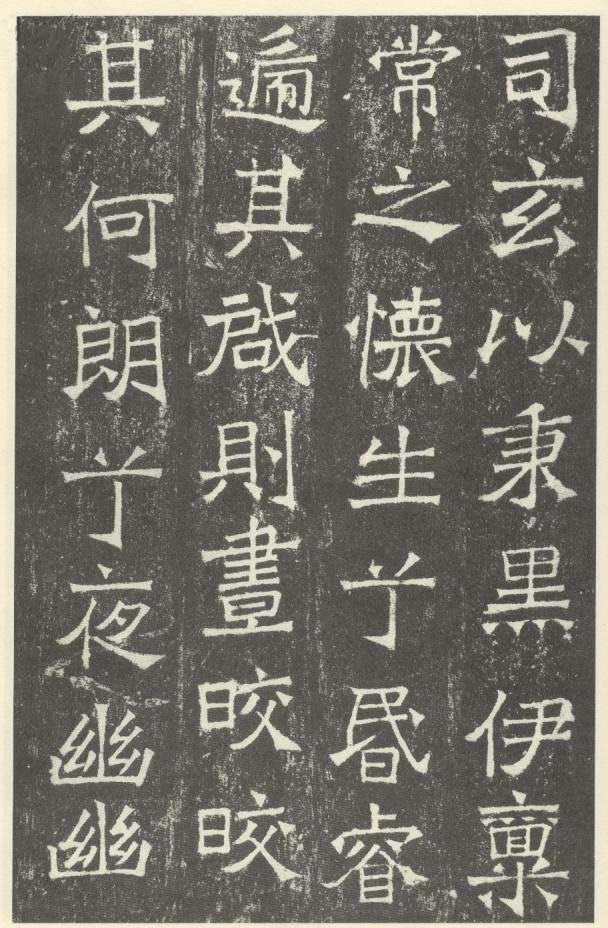 司玄以秉黑伊稟
常之懷生兮昬睿
遍其啟則晝晈晈
其何朗兮夜幽幽